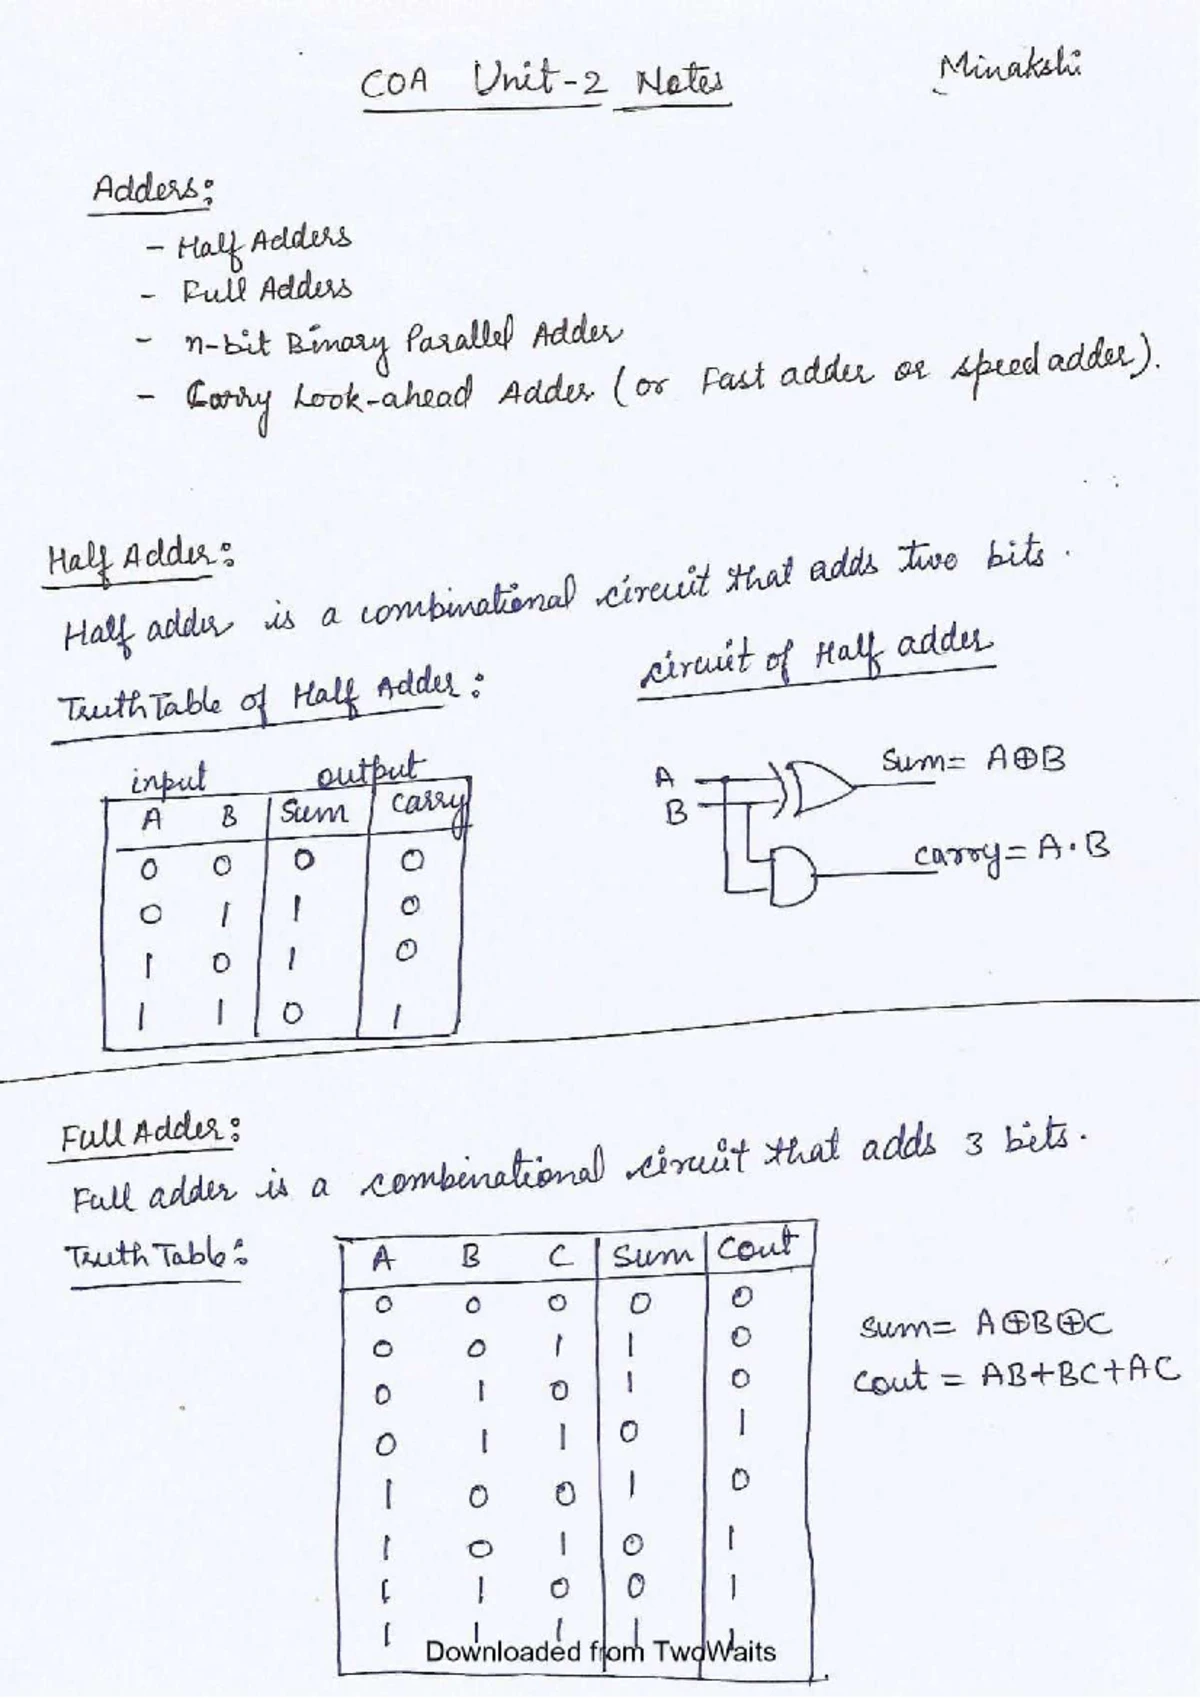 COA Unit-2 Notes
Minakshi
Adders:
- Half Adders
- Full Adders
- n-bit Binary Parallel Adder
- Carry Look-ahead Adder (or Fast adder or speed adder).
Half Adder:
Half adder is a combinational circuit that adds two bits.
Truth Table of Half Adder:
input output
A B Sum Carry
0 0 0 0
0 1 1 0
1 0 1 0
1 1 0 1
circuit of Half adder
A
B
sum= A⊕B
carry= A·B
Full Adder:
Full adder is a combinational circuit that adds 3 bits.
Truth Table:
A B C Sum Cout
0 0 0 0 0
0 0 1 1 0
0 1 0 1 0
0 1 1 0 1
1 0 0 1 0
1 0 1 0 1
1 1 0 0 1
1 1 1 1 1
sum= A⊕B⊕C
cout = AB+BC+AC
Downloaded from TwoWaits